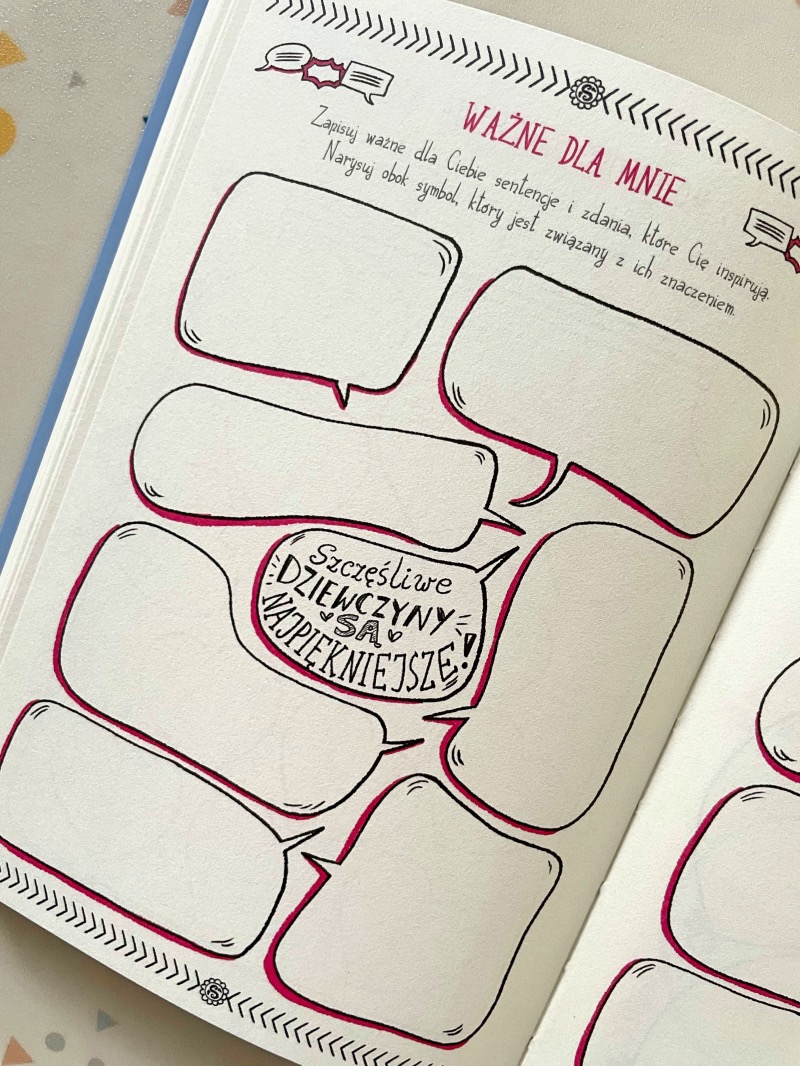 WAŻNE DLA MNIE
Zapisuj ważne dla Ciebie sentencje i zdania, które Cię inspirują.
Narysuj obok symbol, który jest związany z ich znaczeniem.
Szczęśliwe
DZIEWCZYNY
SĄ
NAJPIĘKNIEJSZE!